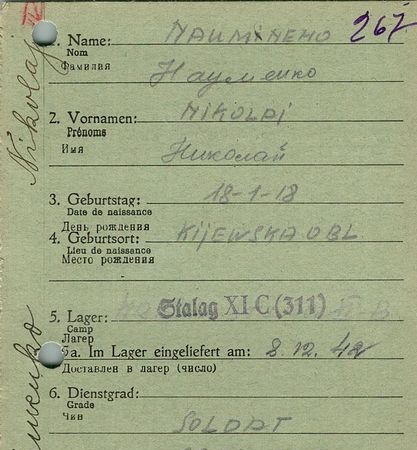 III
267
1. Name: NAUMENEHO
Nom
Фамилия Науменко
2. Vornamen: NIKOLAI
Prénoms
Имя Николай
3. Geburtstag: 18-1-18
Date de naissance
День рождения
4. Geburtsort: KIJEWSKA OBL
Lieu de naissance
Место рождения
5. Lager: Stalag XI C (311)
Camp
Лагер
5a. Im Lager eingeliefert am: 8.12.42
Доставлен в лагер (число)
6. Dienstgrad:
Grade
Чин
SOLDAT
Nikolaj